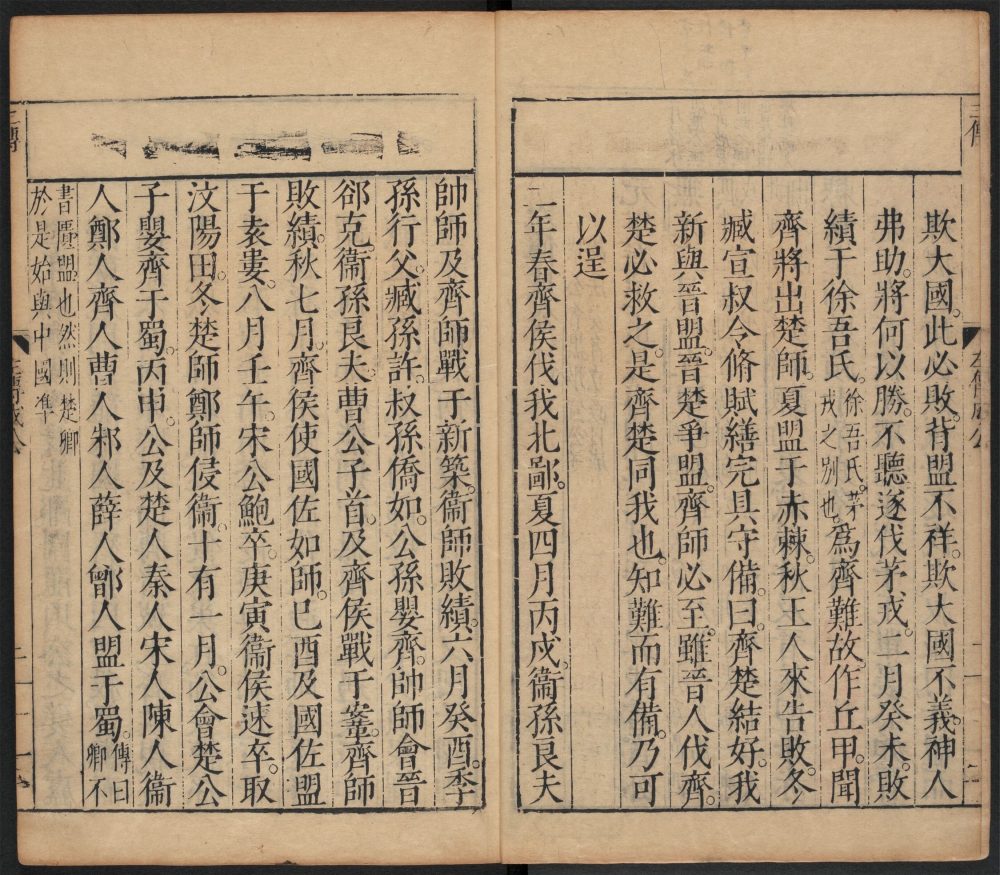 欺大國。此必敗。背盟不祥。欺大國不義。神人
弗助。將何以勝。不聽遂伐茅戎。二月癸未。敗
績于徐吾氏。徐吾氏。茅戎之別也。為齊難故。作丘甲。聞
齊將出楚師。夏盟于赤棘。秋王人來告敗。冬
臧宣叔令脩賦繕完具守備。曰。齊楚結好。我
新與晉盟。晉楚爭盟。齊師必至。雖晉人伐齊。
楚必救之。是齊楚同我也。知難而有備。乃可
以逞
二年春齊侯伐我北鄙。夏四月丙戌。衞孫良夫
帥師及齊師戰于新築。衞師敗績。六月癸酉。季
孫行父。臧孫許。叔孫僑如。公孫嬰齊。帥師會晉
郤克。衞孫良夫。曹公子首。及齊侯戰于鞌。齊師
敗績。秋七月。齊侯使國佐如師。己酉及國佐盟
于袁婁。八月壬午。宋公鮑卒。庚寅衞侯速卒。取
汶陽田。冬楚師鄭師侵衞。十有一月。公會楚公
子嬰齊于蜀。丙申。公及楚人秦人宋人陳人衞
人鄭人齊人曹人邾人薛人鄫人盟于蜀。傳曰卿不
書匱盟也然則楚卿於是始與中國準